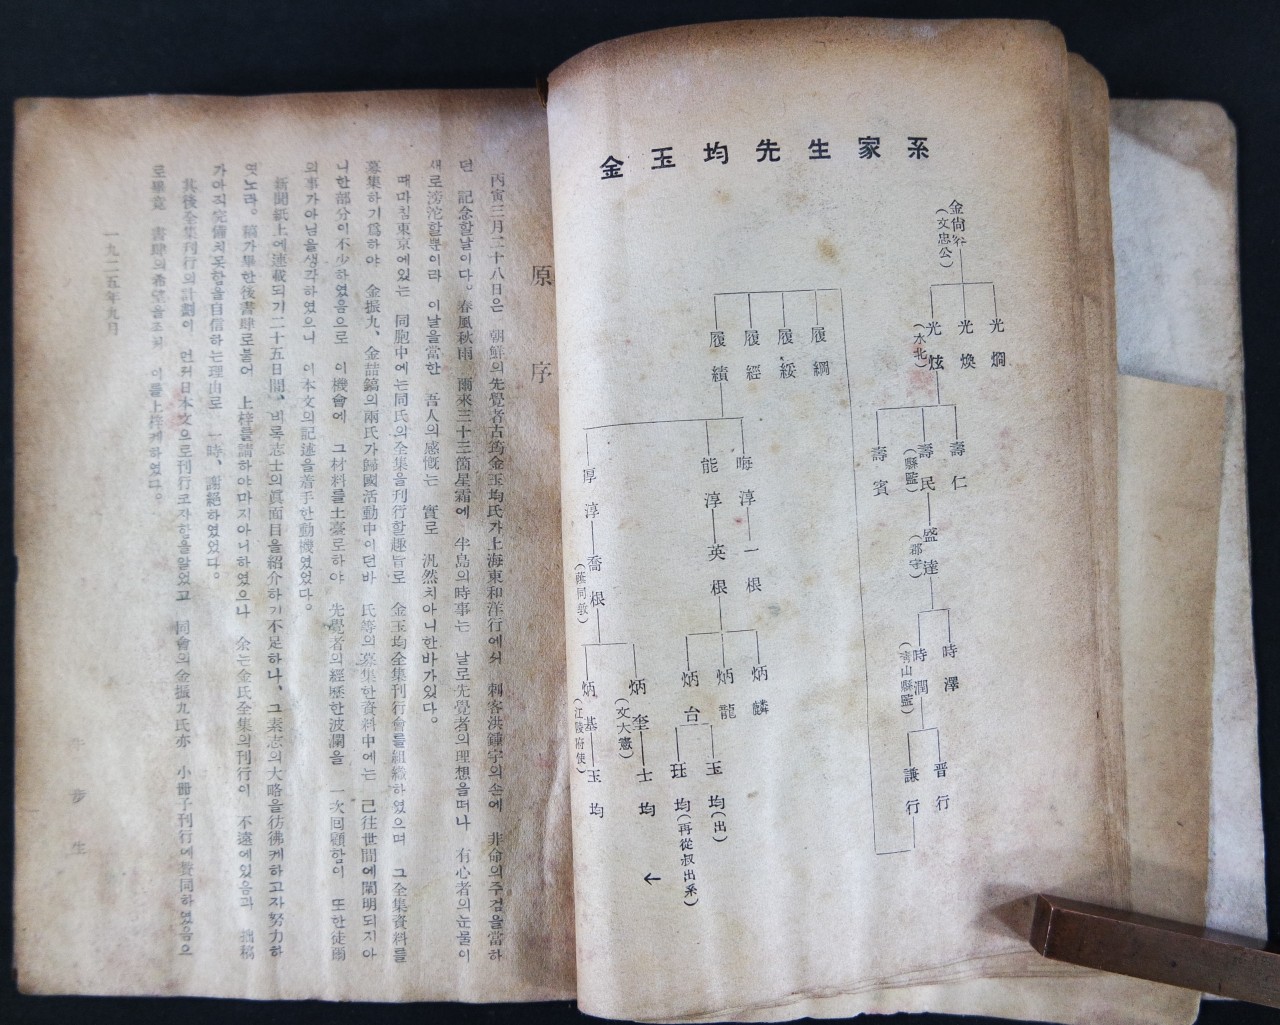 金玉均先生家系
金尙
(文忠公)
光燗
光煥
光炫
(水北)
壽仁
壽民
(縣監)
壽賓
盛達
(郡守)
時澤
時潤
山縣監)
晋行
謙行
履綱
履綏
履經
履績
晦淳
一根
能淳
英根
厚淳
喬根
炳麟
炳龍
炳台
炳奎
(文大憲)
炳基
(江陵府使)
玉均(出)
珏均(再從叔出系)
士均
玉均
←
原序
丙寅三月二十八日은 朝鮮의先覺者古筠金玉均氏가上海東和洋行에서 刺客洪鐘宇의손에 非命의주검을當하
던 記念할날이다。春風秋雨 爾來三十三箇星霜에 半島의時事는 날로先覺者의理想을떠나 有心者의눈물이
새로滂沱할뿐이라 이날을當한 吾人의感慨는 實로 汎然치아니한바가잇다。
때마침東京에잇는 同胞中에는同氏의全集을刊行할趣旨로 金玉均全集刊行會를組織하였으며 그全集資料를
募集하기爲하야 金振九、金喆鎬의兩氏가歸國活動中이던바 氏等의募集한資料中에는 己往世間에闡明되지아
니한部分이不少하였음으로 이機會에 그材料를土臺로하야 先覺者의經歷한波瀾을 一次回顧함이 또한徒爾
의事가아님을생각하였으니 이本文의記述을着手한動機였었다。
新聞紙上에連載되기二十五日間、비록志士의眞面目을紹介하기不足하나、그素志의大略을彷彿케하고자努力하
엿노라。稿가畢한後書肆로붙어 上梓를請하야마지아니하였으나 余는金氏全集의刊行이 不遠에있음과 拙稿
가아직完備치못함을自信하는理由로 一時、謝絕하였었다。
其後全集刊行의計劃이 먼저日本文으로刊行코자함을알었고 同會의金振九氏亦 小冊子刊行에贊同하였음으
로畢竟 書肆의希望을조차 이를上梓케하였다。
一九二五年九月
步生